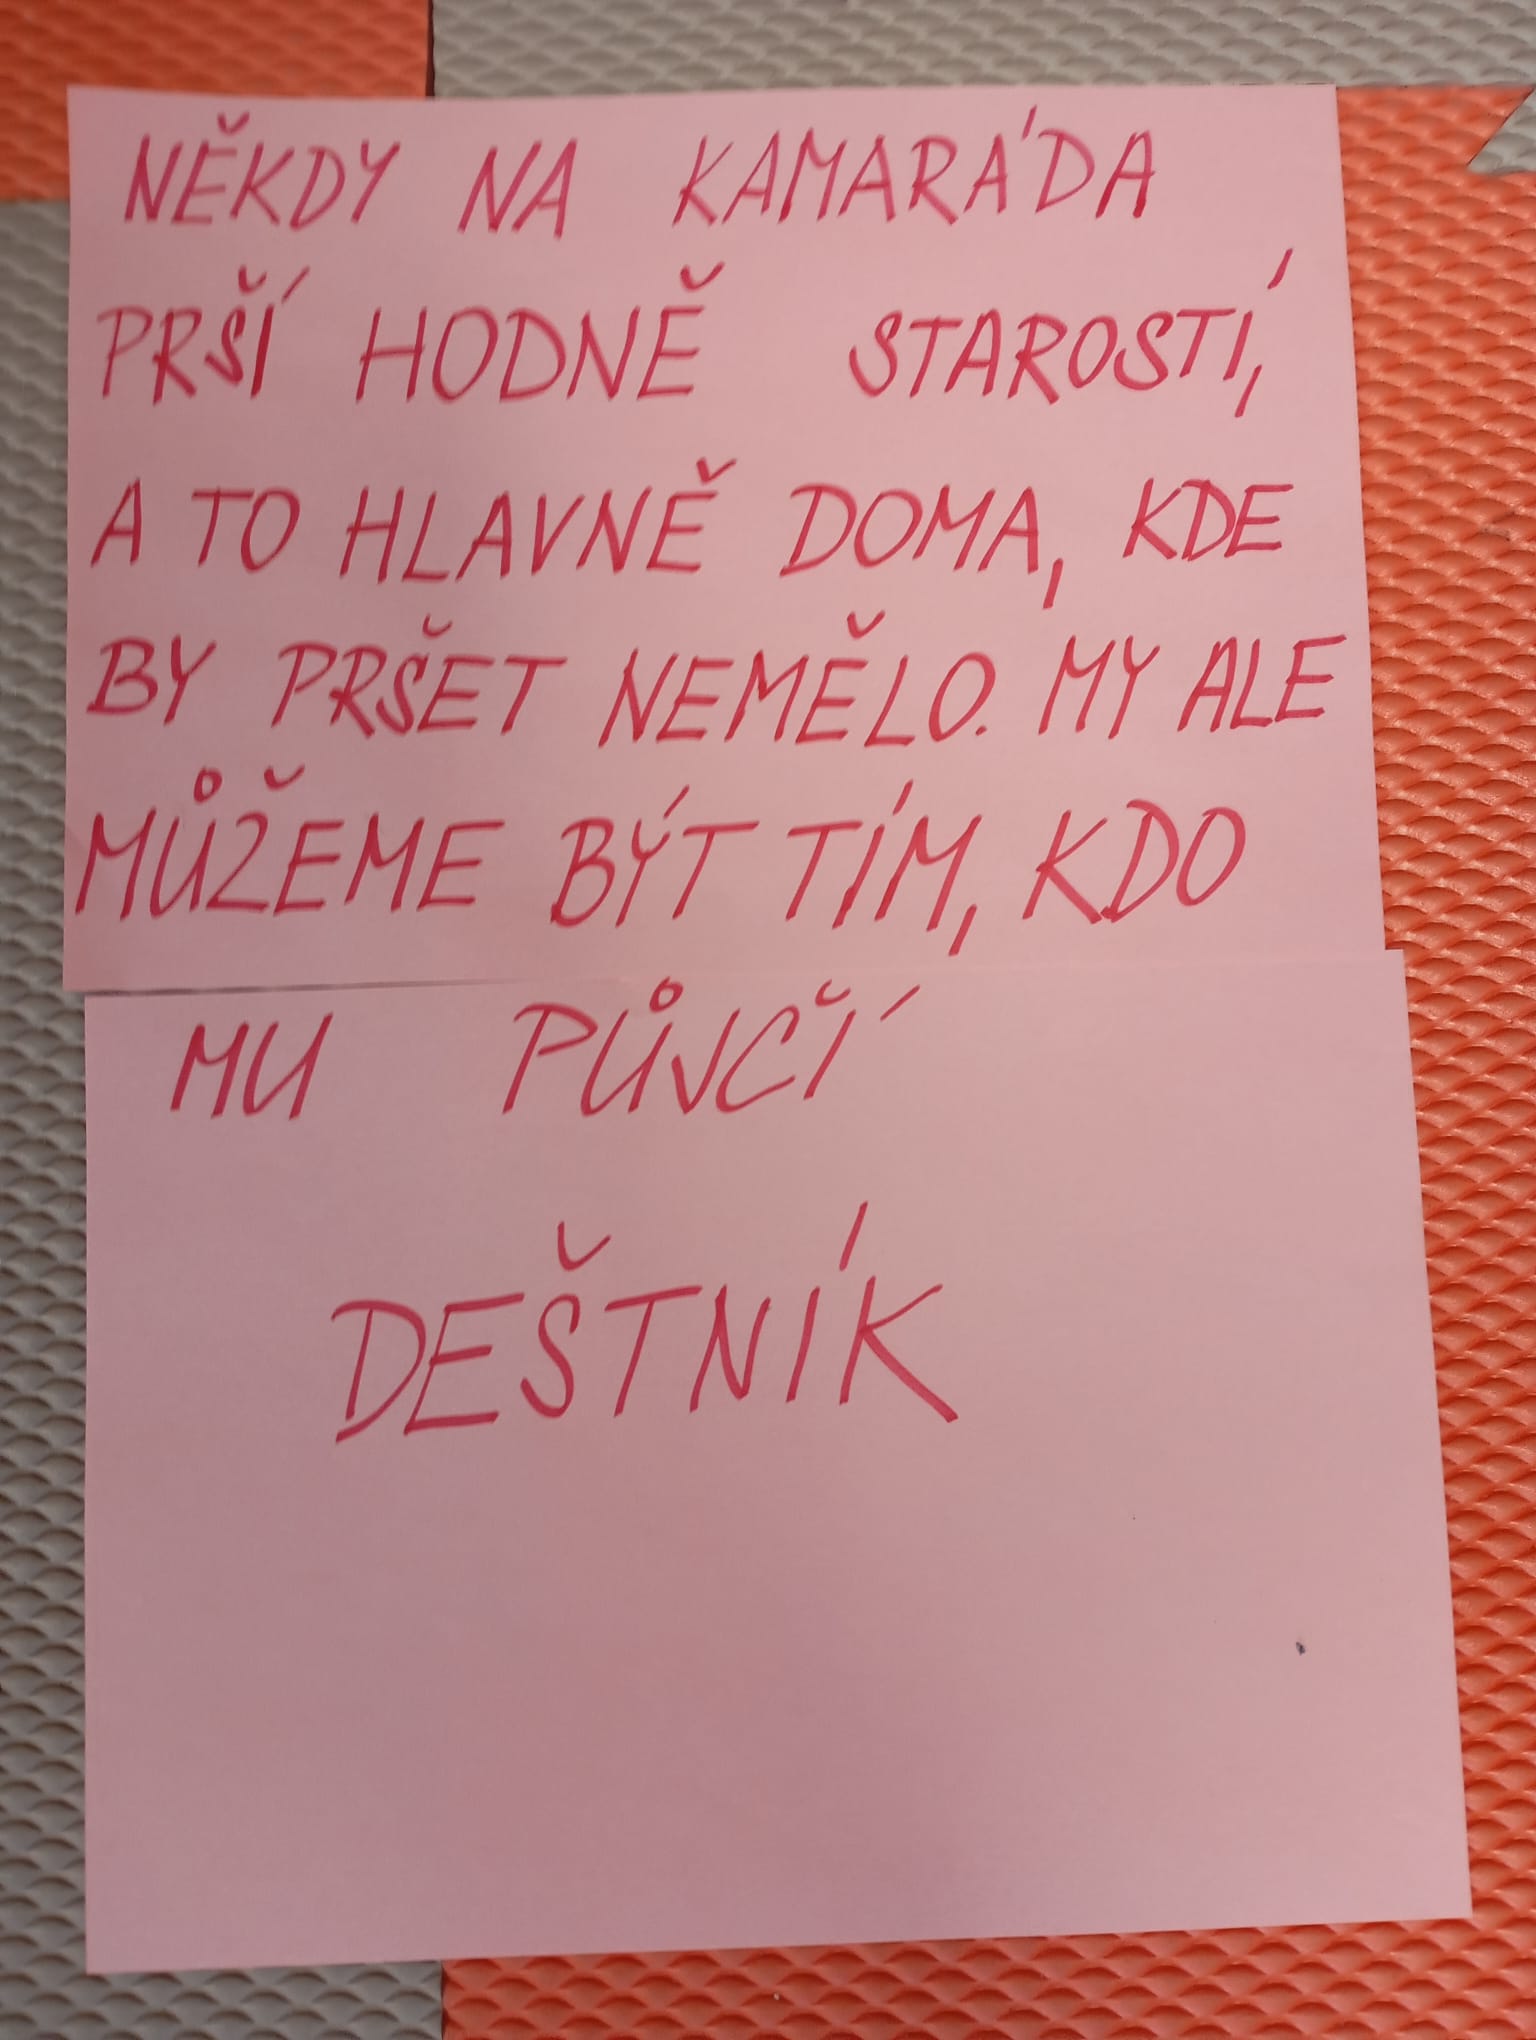 NĚKDY NA KAMARÁDA
PRŠÍ HODNĚ STAROSTÍ,
A TO HLAVNĚ DOMA, KDE
BY PRŠET NEMĚLO. MY ALE
MŮŽEME BÝT TÍM, KDO
MU PŮJČÍ
DEŠTNÍK